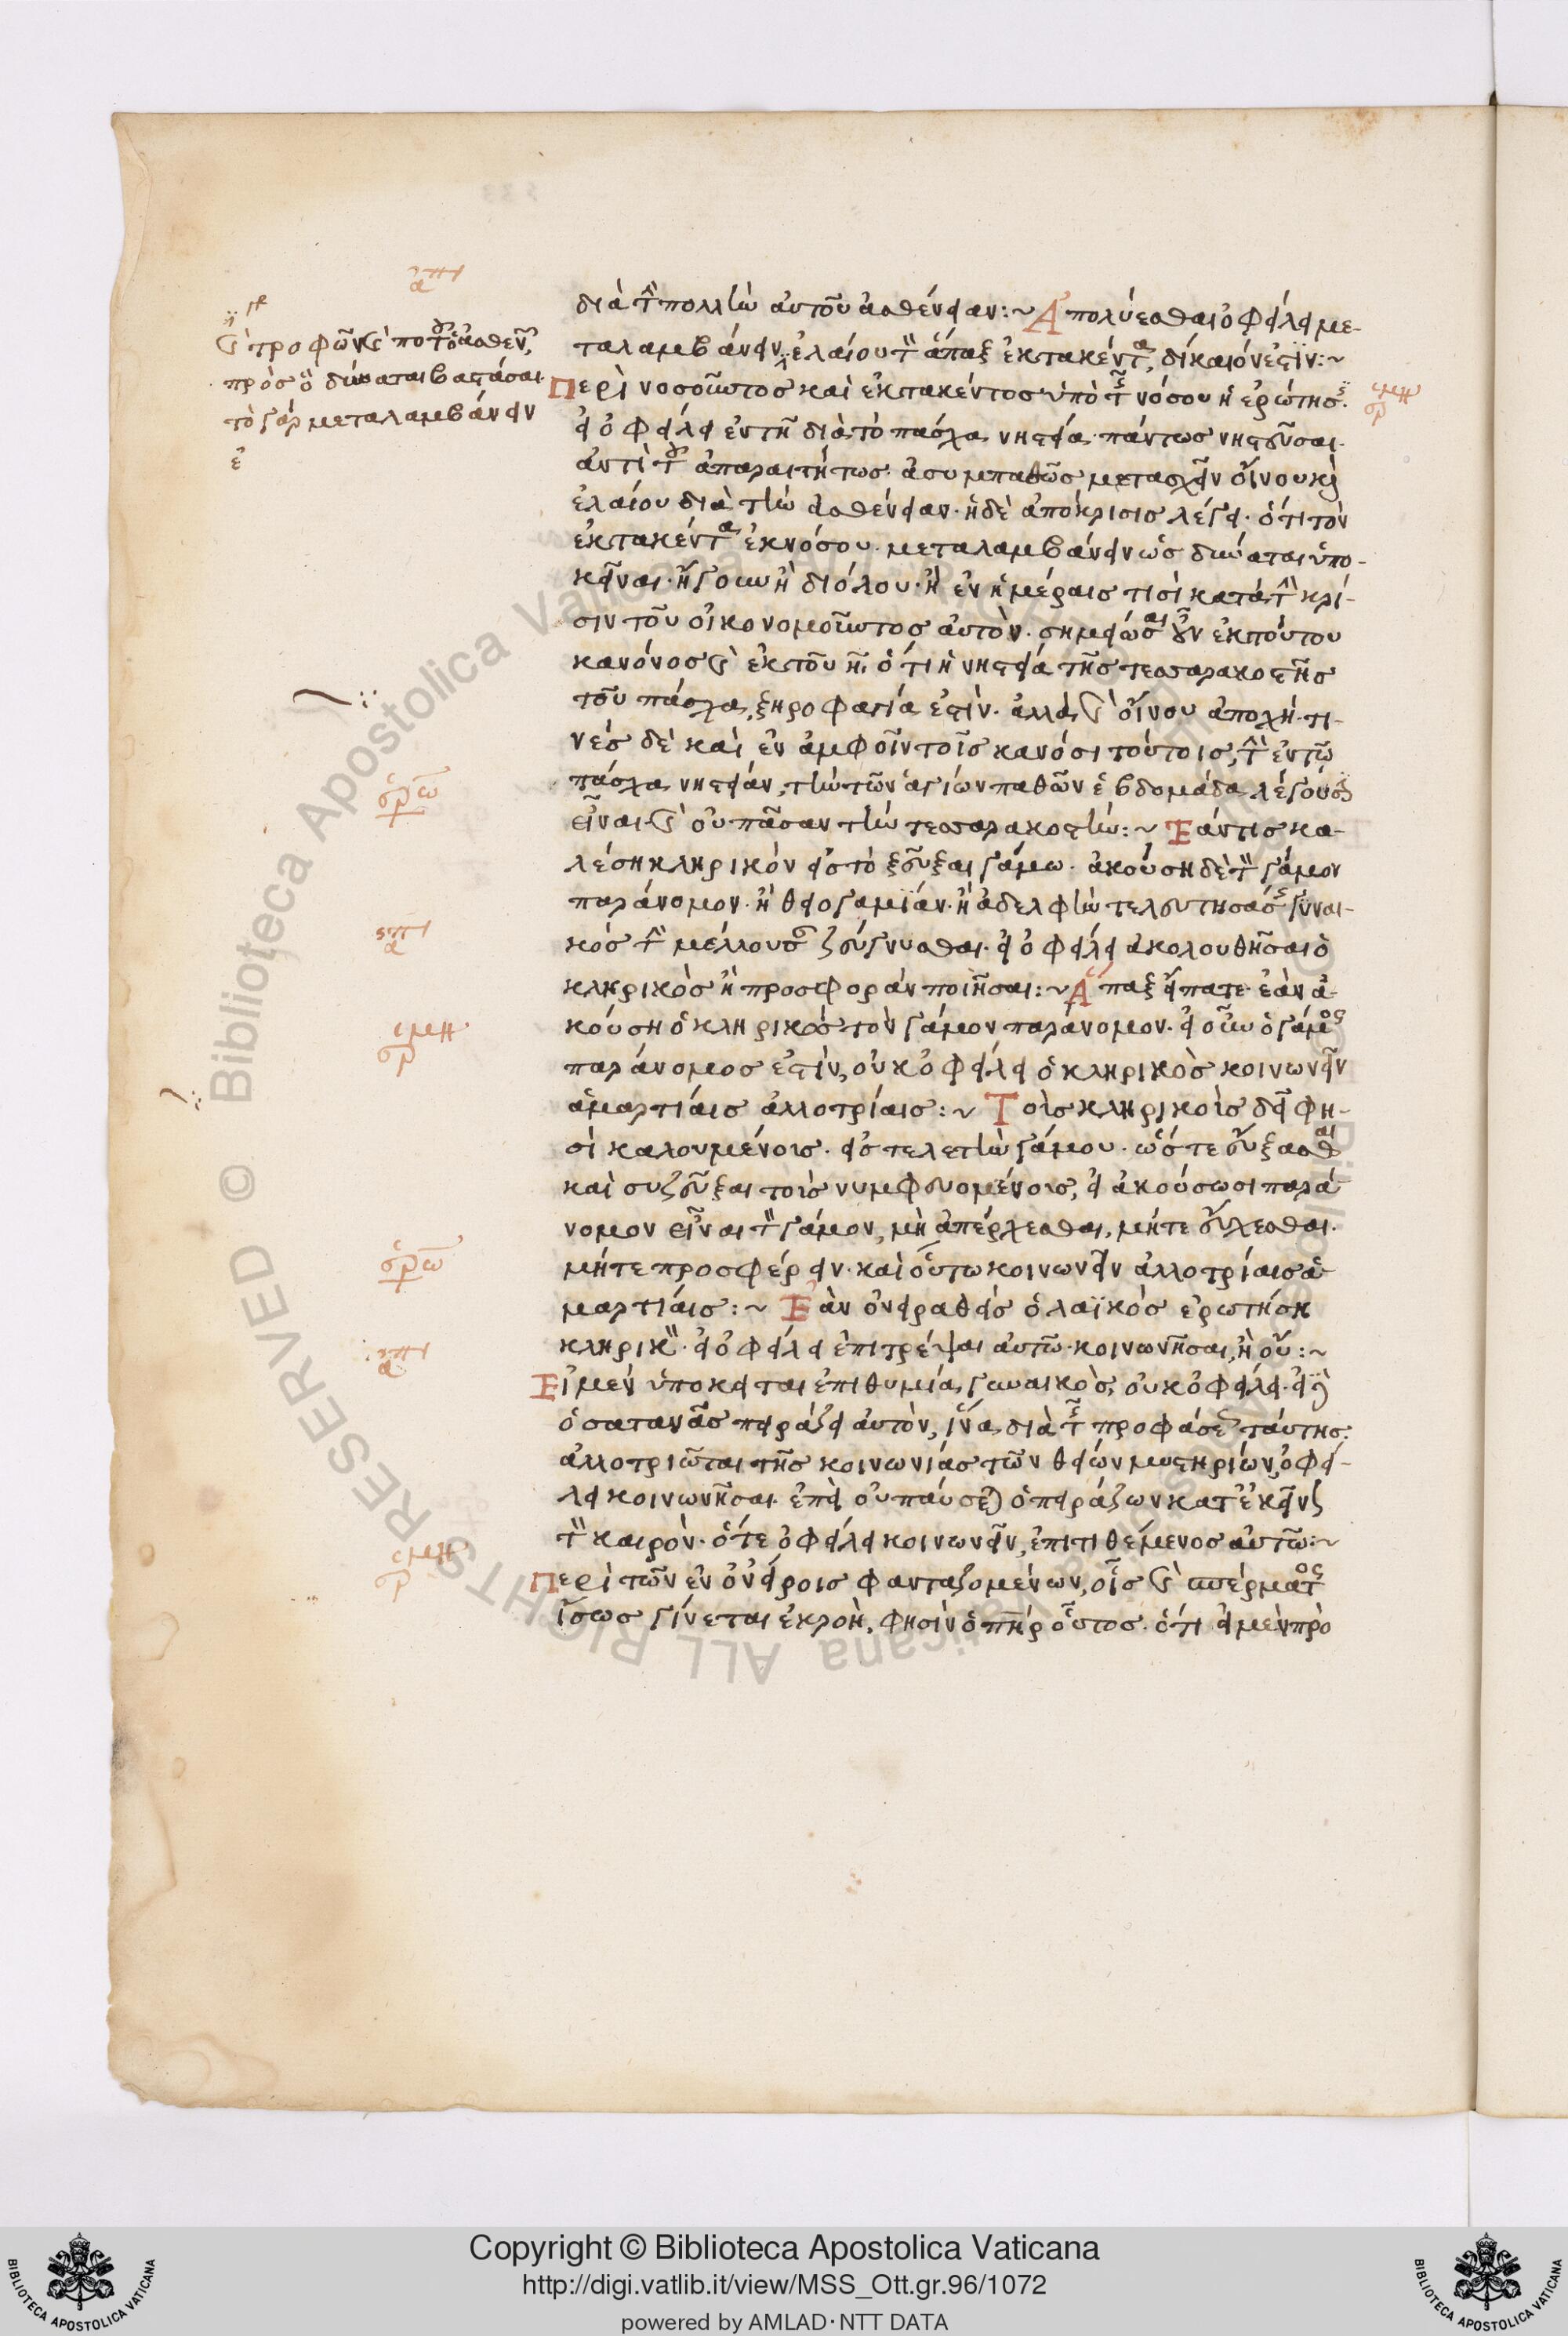 διὰ τὴν πολλὴν αὐτοῦ ἀσθένειαν:~ Ἀπολύεσθαι ὀφείλει με-
ταλαμβάνειν ἐλαίου τὸν ἅπαξ ἐκτακέντα, δίκαιόν ἐστιν:~
Περὶ νοσοῦντος καὶ ἐκτακέντος ὑπὸ τῆς νόσου ἡ ἐρώτησις.
εἰ ὀφείλει ἐν τῆ διὰ τὸ πάσχα νηστεία πάντως νηστεῦσαι.
ἀντὶ τοῦ ἀπαραιτήτως ἀσυμπαθῶς μετασχεῖν οἴνου καὶ
ἐλαίου διὰ τὴν ἀσθένειαν. ἡ δὲ ἀπόκρισις λέγει. ὅτι τὸν
ἐκτακέντα ἐκ νόσου μεταλαμβάνειν ὡς δύναται ὑπο-
κεῖναι. ἤγουν ἢ διόλου. ἢ ἐν ἡμέραις τισὶ κατὰ τὴν κρί-
σιν τοῦ οἰκονομοῦντος αὐτόν. σημείωσαι οὖν ἐκ τούτου
κανόνος καὶ ἐκ τοῦ η. ὅτι ἡ νηστεία τῆς τεσσαρακοστῆς
τοῦ πάσχα, ξηροφαγία ἐστίν. ἀλλὰ καὶ οἴνου ἀποχή. τι-
νὲς δὲ καὶ ἐν ἀμφοῖν τοῖς κανόσι τούτοις, τὴν ἐν τῶ
πάσχα νηστείαν, τὴν τῶν ἁγίων παθῶν ἑβδομάδα λέγουσιν
εἶναι καὶ οὐ πᾶσαν τὴν τεσσαρακοστήν:~ Ἐάν τις κα-
λέση κληρικὸν εἰς τὸ ζεῦξαι γάμω. ἀκούση δὲ τὸν γάμον
παράνομον. ἢ θειογαμίαν. ἢ ἀδελφὴν τελευτησάσης γυναι-
κὸς τὴν μέλλουσαν ζεύγνυσθαι. εἰ ὀφείλει ἀκολουθῆσαι ὁ
κληρικὸς ἢ προσφορὰν ποιῆσαι:~ Ἅπαξ εἴπατε ἐὰν ἀ-
κούση ὁ κληρικὸς τὸν γάμον παράνομον. εἰ οὖν ὁ γάμος
παράνομος ἐστίν, οὐκ ὀφείλει ὁ κληρικὸς κοινωνεῖν
ἁμαρτίαις ἀλλοτρίαις:~ Τοῖς κληρικοῖς δεῖ φη-
σὶ καλουμένοις εἰς τελετὴν γάμου. ὥστε εὔξασθαι
καὶ συζεῦξαι τοῖς νυμφευομένοις, εἰ ἀκούσωσι παρά
νομον εἶναι τὸν γάμον, μὴ ἀπέρχεσθαι, μήτε εὔχεσθαι.
μήτε προσφέρειν. καὶ οὕτω κοινωνεῖν ἀλλοτρίαις ἁ-
μαρτίαις:~ Ἐὰν ὀνειραθεὶς ὁ λαϊκὸς ἐρωτήση
κληρικόν. εἰ ὀφείλει ἐπιτρέψαι αὐτῶ κοινωνῆσαι, ἢ οὔ:~
Εἰ μὲν ὑπόκειται ἐπιθυμία γυναικός, οὐκ ὀφείλει. εἰ δὲ
ὁ σατανᾶς πειράζει αὐτόν, ἵνα διὰ τῆς προφάσεως ταύτης
ἀλλοτριῶται τῆς κοινωνίας τῶν θείων μυστηρίων, ὀφεί-
λει κοινωνῆσαι. ἐπεὶ οὐ παύσεται ὁ πειράζων κατ' ἐκεῖνον
τὸν καιρὸν. ὅτε ὀφείλει κοινωνεῖν, ἐπιτιθέμενος αὐτῶ:~
Περὶ τῶν ἐν ὀνείροις φανταζομένων, οἷς καὶ σπέρματος
ἴσως γίνεται ἐκροή, φησὶν ὁ πὴρ οὗτος. ὅτι εἰ μὲν πρὸ
πρὸς ὃ δύναται βαστάσαι
τὸ γὰρ μεταλαμβάνειν
ἐ
Copyright © Biblioteca Apostolica Vaticana
http://digi.vatlib.it/view/MSS_Ott.gr.96/1072
powered by AMLAD·NTT DATA
BIBLIOTECA APOSTOLICA VATICANA
BIBLIOTECA APOSTOLICA VATICANA
Biblioteca Apostolica Vaticana
ALL RIGHTS RESERVED ©